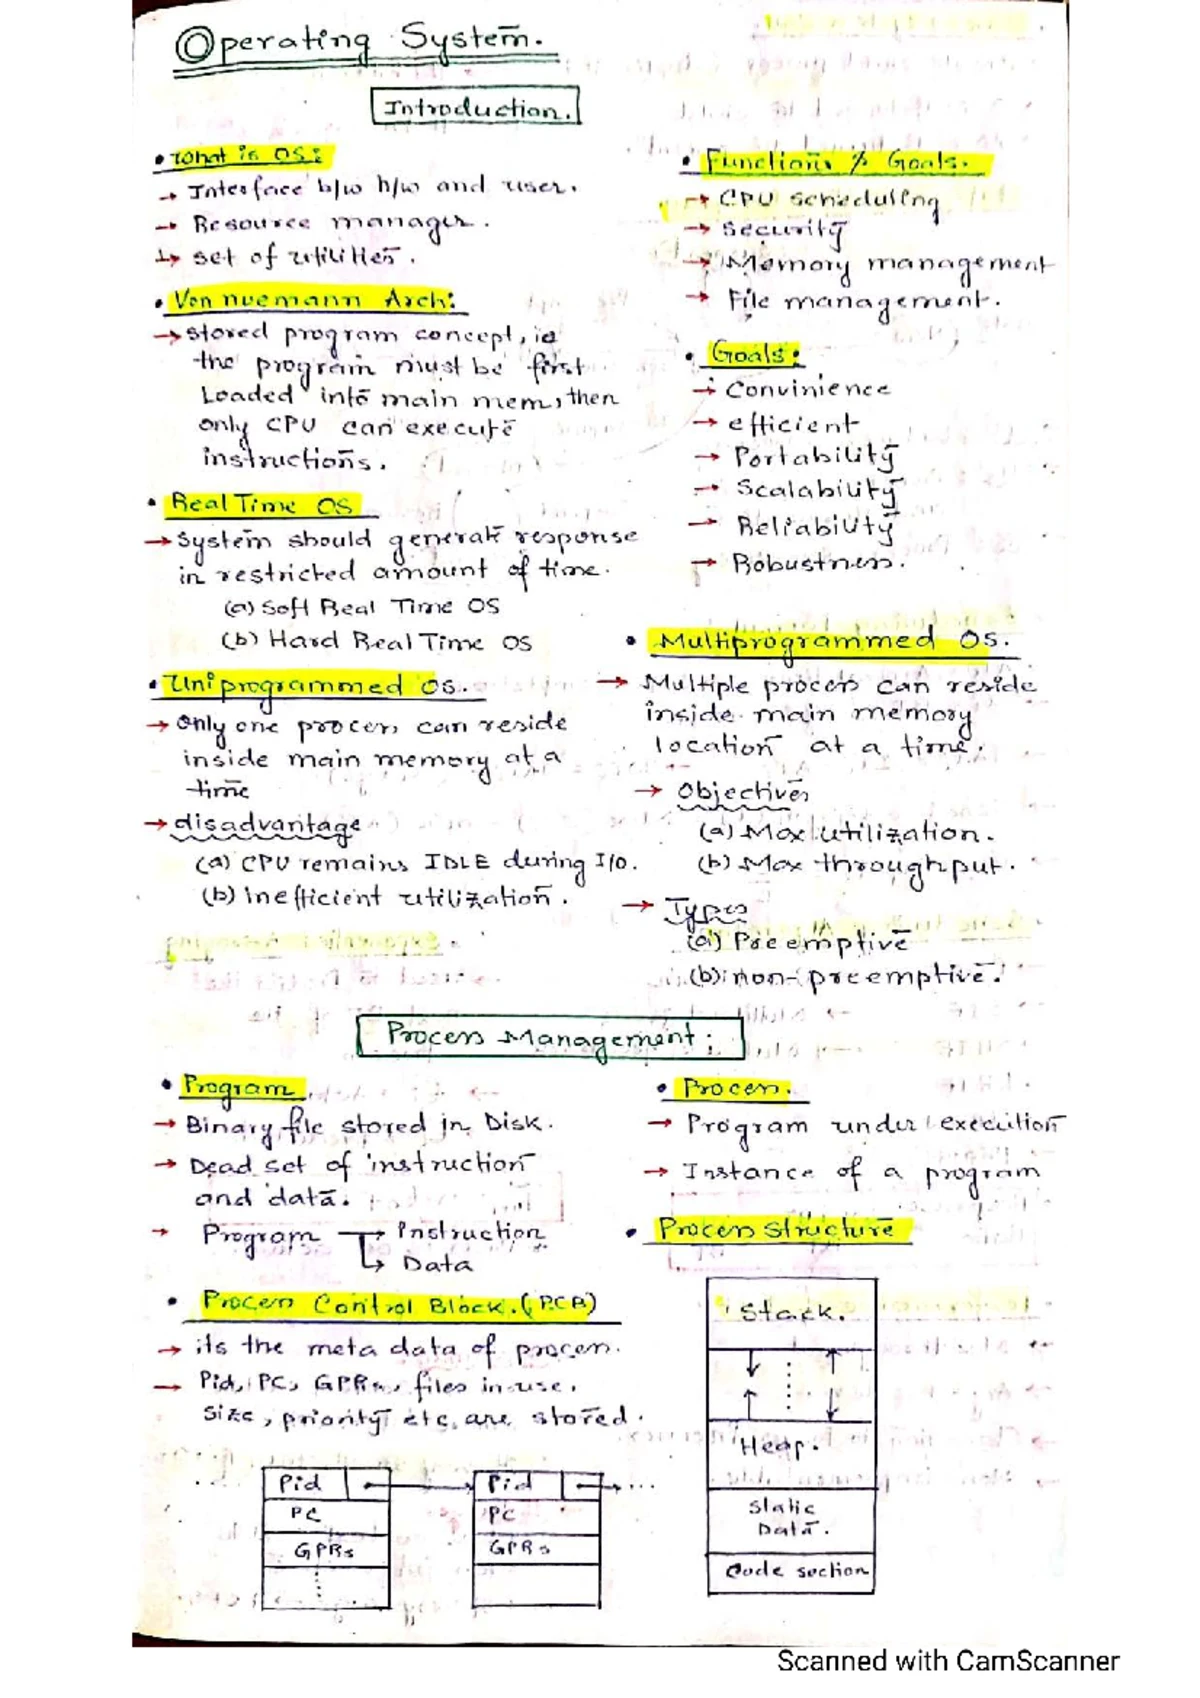 Operating System.
Introduction.
• What is OS:
→ Interface b/w h/w and user.
→ Resource manager.
→ set of utilities.
• Von nuemann Arch:
→ stored program concept, ie
the program must be first
Loaded into main mem, then
only CPU can execute
instructions.
• Real Time OS
→ System should generate response
in restricted amount of time.
(a) Soft Real Time OS
(b) Hard Real Time OS
• Uniprogrammed OS.
→ Only one process can reside
inside main memory at a
time
→ disadvantage
(a) CPU remains IDLE during I/O.
(b) Inefficient utilization.
• Functions & Goals.
→ CPU scheduling
→ security
→ Memory management
→ File management.
• Goals:
→ Convinience
→ efficient
→ Portability
→ Scalability
→ Reliability
→ Robustness.
• Multiprogrammed OS.
→ Multiple process can reside
inside main memory
location at a time.
→ Objectives
(a) Max utilization.
(b) Max throughput.
→ Types
(a) Preemptive
(b) non-preemptive.
Process Management:
• Program
→ Binary file stored in Disk.
→ Dead set of instruction
and data.
→ Program → Instruction
→ Data
• Process Control Block. (PCB)
→ its the meta data of process.
→ Pid, PC, GPRs, files in use,
size, priority etc. are stored.
Pid
PC
GPRs
Pid
PC
GPRs
• Process.
→ Program under execution
→ Instance of a program
• Process Structure
Stack.
Heap.
Static
Data.
Code section
Scanned with CamScanner